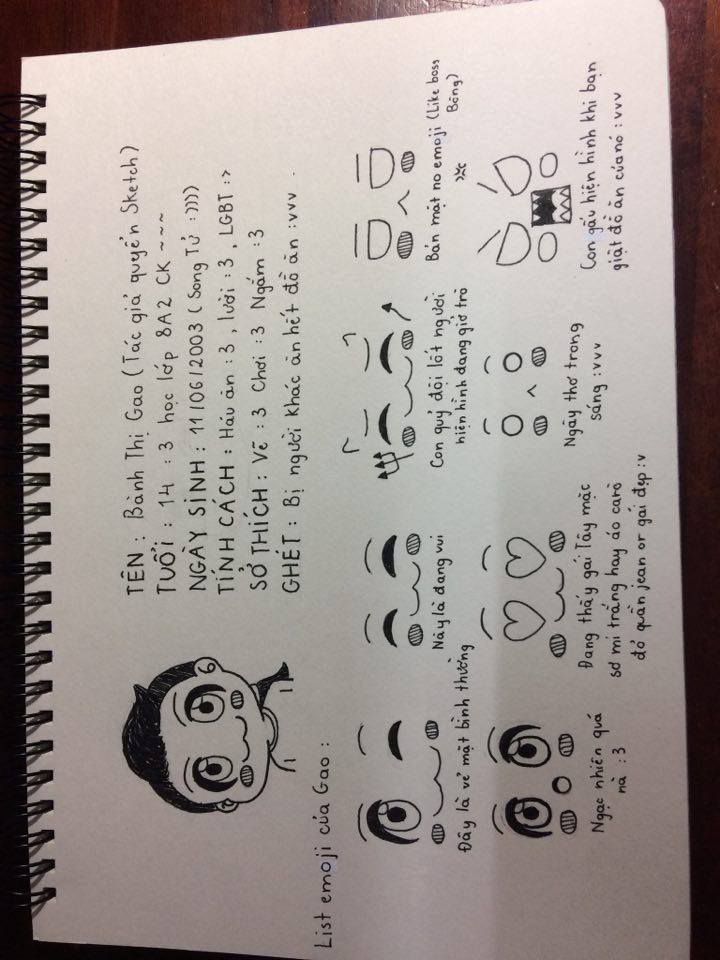 TÊN : Bánh Thị Gạo (Tác giả quyển Sketch)
TUỔI : 14 :3 học lớp 8A2 CK ~~~
NGÀY SINH : 11/06/2003 (Song Tử :))))
TÍNH CÁCH : Háu ăn :3 , lười :3 , LGBT :>
SỞ THÍCH : Vẽ :3 Chơi :3 Ngắm :3
GHÉT : Bị người khác ăn hết đồ ăn :vvv .
List emoji của Gạo :
Đây là vẻ mặt bình thường
Này là đang vui
Con quỷ đội lốt người
hiện hình đang giở trò
Bán mặt no emoji (Like boss
Bóng)
Ngạc nhiên quá
nà :3
Đang thấy gái Tây mặc
sơ mi trắng hay áo carô
đỏ quần jean or gái đẹp :v
Ngây thơ trong
sáng :vvv
Con gấu hiện hình khi bạn
giật đồ ăn của nó :vvv